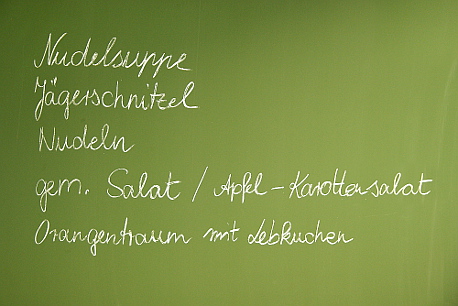 Nudelsuppe
Jägerschnitzel
Nudeln
gem. Salat / Apfel-Karottensalat
Orangentraum mit Lebkuchen